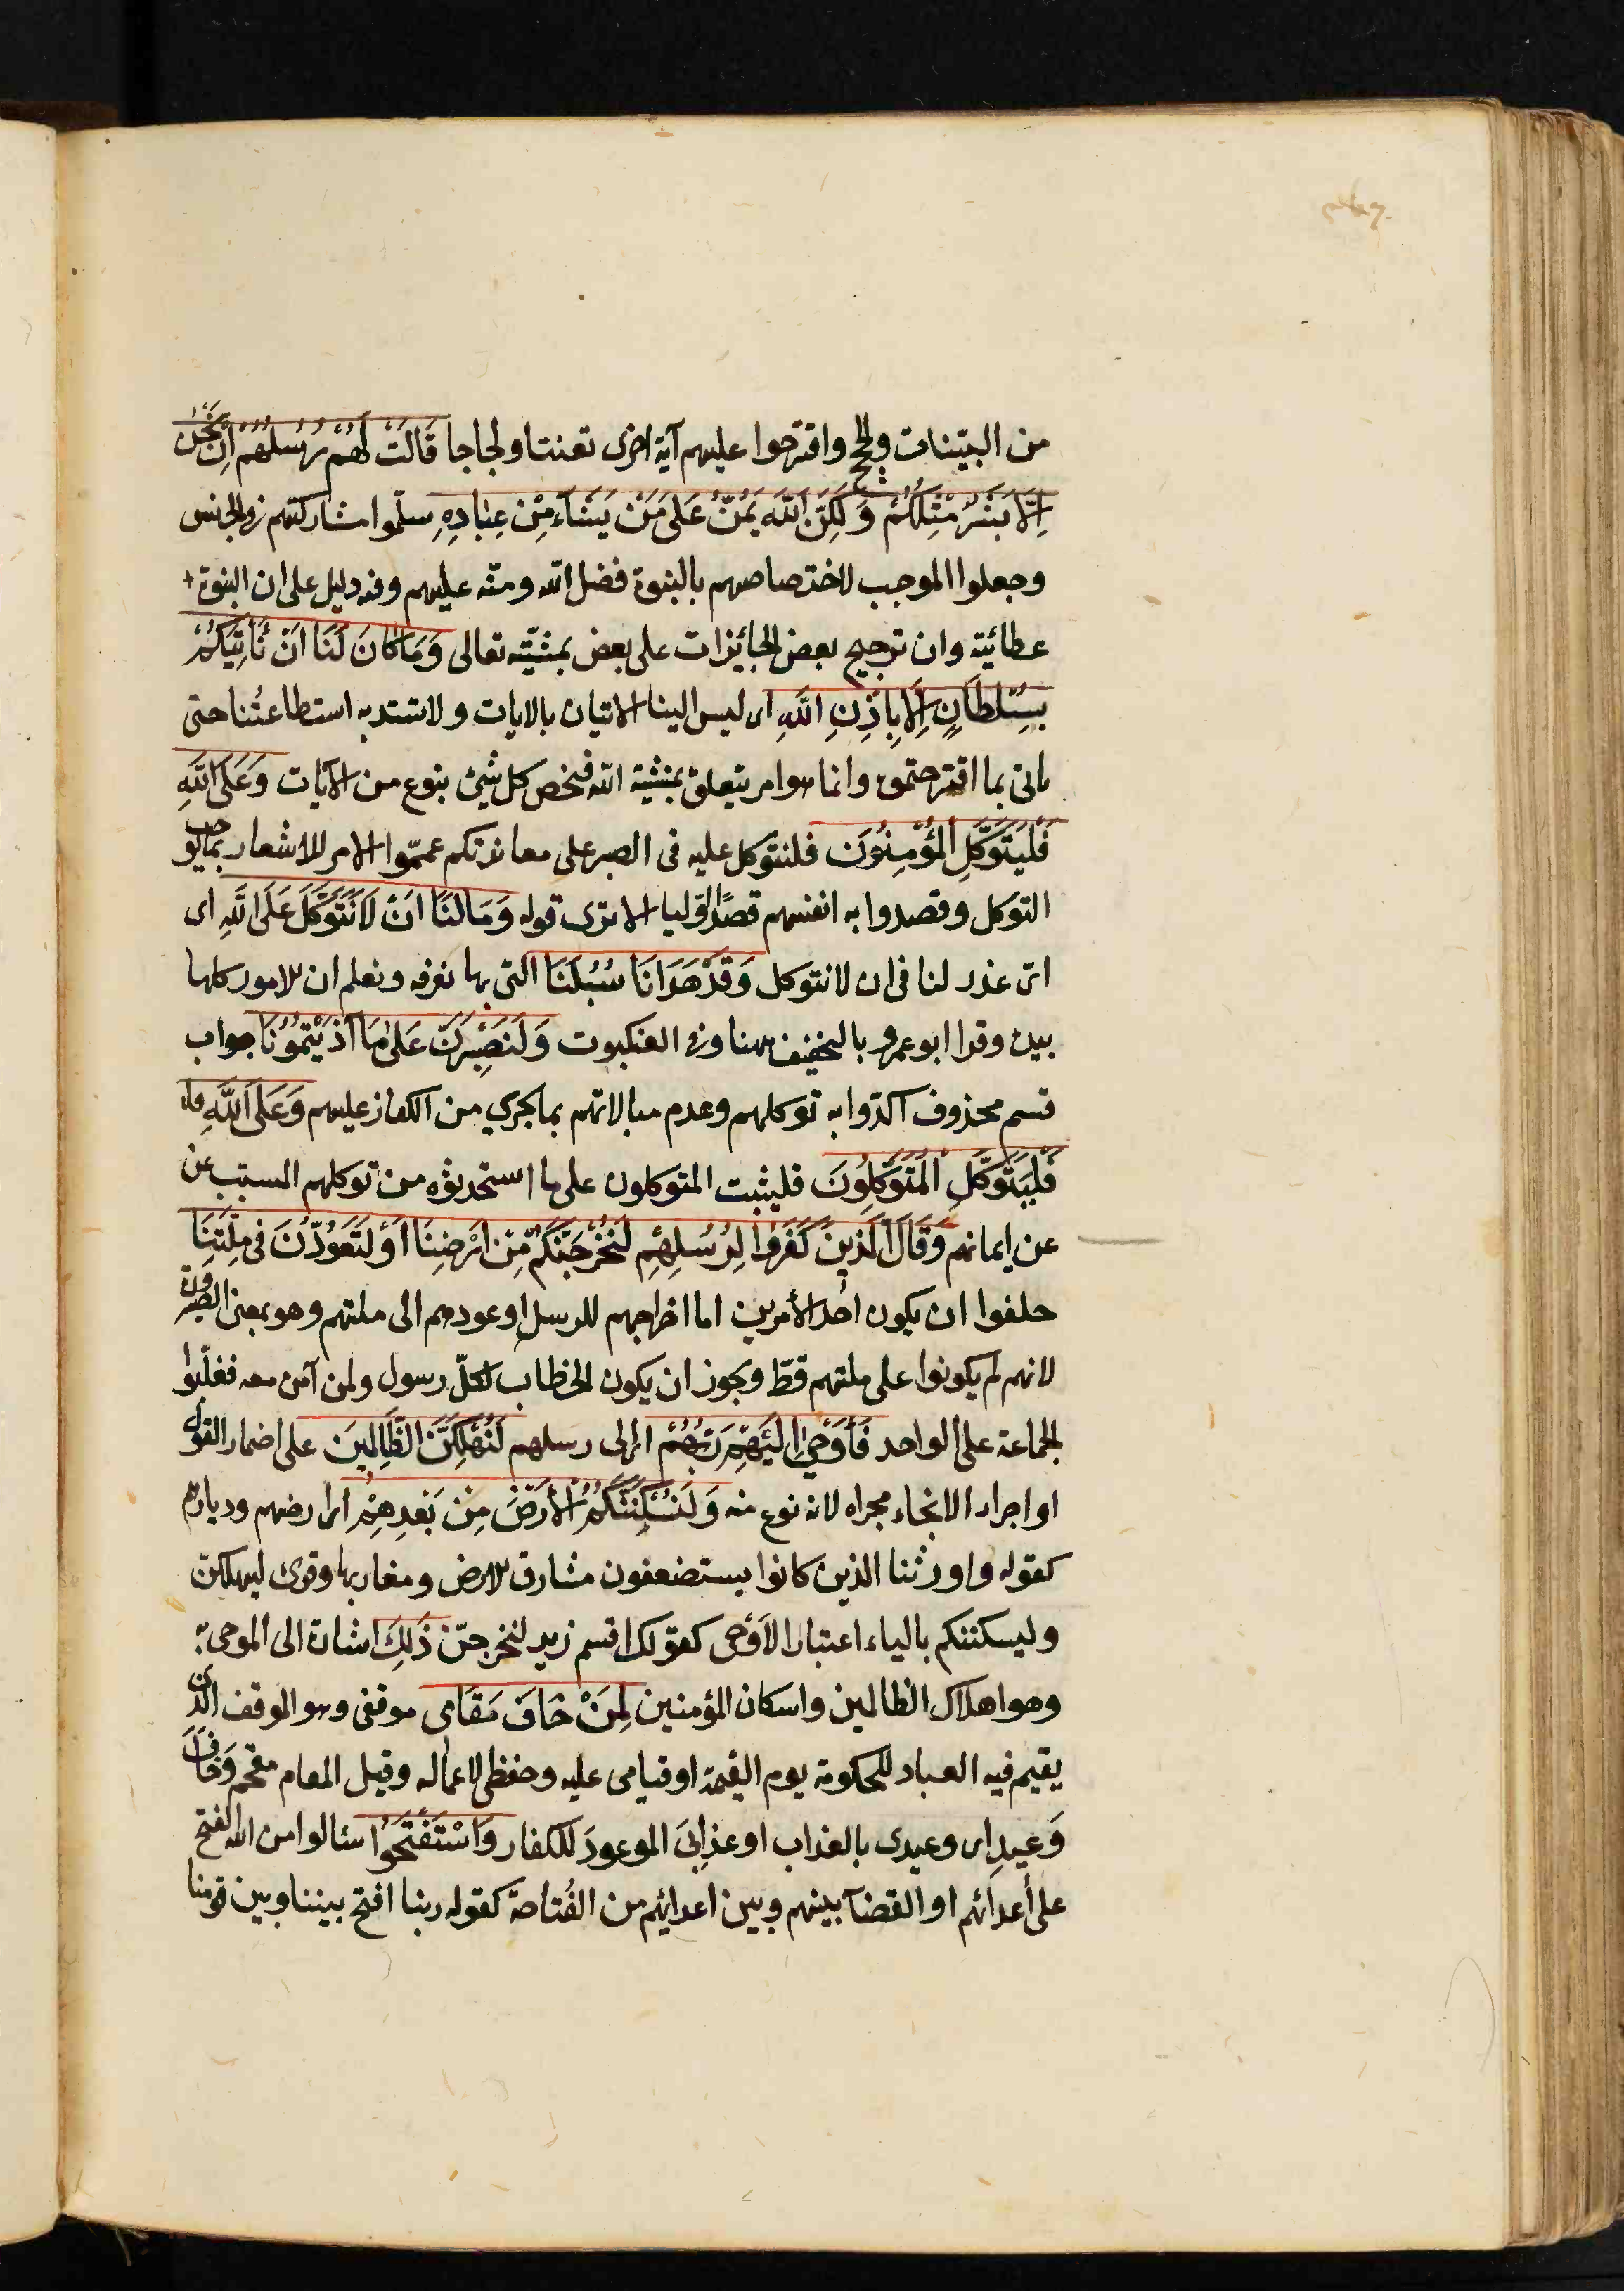 من البيّنات والحجج واقترحوا عليهم آية اخرى تعنتا ولجاجا قَالَتْ لَهُمْ رُسُلُهُمْ اِنْ نَحْنُ
اِلَّا بَشَرٌ مِثْلُكُمْ وَلَكِنَّ اللّٰهَ يَمُنُّ عَلَى مَنْ يَشَاءُ مِنْ عِبَادِهِ سلّموا مشاركتهم فى الجنس
وجعلوا الموجب لاختصاصهم بالنبوة فضل الله ومنّه عليهم وفيه دليل على ان النبوة
عطائية وان ترجيح بعض الجائزات على بعض بمشيّته تعالى وَمَا كَانَ لَنَا اَنْ نَأْتِيَكُمْ
بِسُلْطَانٍ اِلَّا بِاِذْنِ اللّٰهِ اى ليس الينا الاتيان بالايات ولا تستبد به استطاعتُنا حتى
ناتى بما اقترحتموه وانما هو امر يتعلق بمشية الله فيخص كل شئ بنوع من الآيات وَعَلَى اللّٰهِ
فَلْيَتَوَكَّلِ الْمُؤْمِنُونَ فلنتوكل عليه فى الصبر على معاندتكم عمّموا الامر للاشعار بما يوجب
التوكل وقصدوا به انفسهم قصدًا اوّليا الا ترى قوله وَمَا لَنَا اَنْ لَا نَتَوَكَّلَ عَلَى اللّٰهِ اى
اىّ عذر لنا فى ان لا نتوكل وَقَدْ هَدَانَا سُبُلَنَا التى بها نعرفه ونعلم ان الامور كلها
بيده وقرا ابو عمرو بالتخفيف ههنا وفى العنكبوت وَلَنَصْبِرَنَّ عَلَى مَا آذَيْتُمُونَا جواب
قسم محذوف اكدّوا به توكلهم وعدم مبالاتهم بما يجرى من الكفار عليهم وَعَلَى اللّٰهِ فلـ
فَلْيَتَوَكَّلِ الْمُتَوَكِّلُونَ فليثبت المتوكلون على ما استحدثوه من توكلهم المسبب عن
عن ايمانهم وَقَالَ الَّذِينَ كَفَرُوا لِرُسُلِهِمْ لَنُخْرِجَنَّكُمْ مِنْ اَرْضِنَا اَوْ لَتَعُودُنَّ فى مِلَّتِنَا
حلفوا ان يكون احد الأمرين اما اخراجهم للرسل او عودهم الى ملتهم وهو بمعنى الصيرورة
لانهم لم يكونوا على ملتهم قطّ ويجوز ان يكون الخطاب لكلّ رسول ولمن آمن معه فغلّبوا
الجماعة على الواحد فَأَوْحَى اِلَيْهِمْ رَبُّهُمْ اى الى رسلهم لَنُهْلِكَنَّ الظَّالِمِينَ على اضمار القول
او اجراء الايحاء مجراه لانه نوع منه وَلَنُسْكِنَنَّكُمُ الْأَرْضَ مِنْ بَعْدِهِمْ اى ارضهم وديارهم
كقوله واورثنا الذين كانوا يستضعفون مشارق الارض ومغاربها وقرئ ليهلكن
وليسكننكم بالياء اعتبارا لأوحى كقولك اقسم زيد لنخرجنّ ذَلِكَ اشارة الى الموحى به
وهو اهلاك الظالمين واسكان المؤمنين لِمَنْ خَافَ مَقَامى موقفى وهو الموقف الذى
يقيم فيه العباد للحكومة يوم القيمة او قيامى عليه وحفظى لاعماله وقيل المقام مقحم وَخَافَ
وَعِيدِ اى وعيدى بالعذاب او عذابىَ الموعودَ للكفار وَاسْتَفْتَحُوا سئالوا من الله الفتح
على أعدائهم او القضآ بينهم وبين اعدائهم من الفُتاحة كقوله ربنا افتح بيننا وبين قومنا